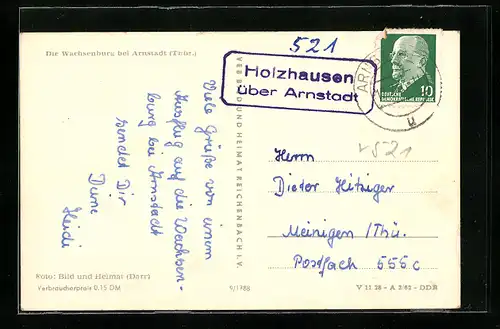 521
Die Wachsenburg bei Arnstadt (Thür.)
Holzhausen
über Arnstadt
ARNS
10
DEUTSCHE
DEMOKRATISCHE REPUBLIK
u
Viele Grüße von einem
Ausflug auf die Wachsen-
burg bei Arnstadt
sendet Dir
Deine
Heidi
VEB BILD UND HEIMAT REICHENBACH I. V.
v 521
Herrn
Dieter Hitziger
Meinigen/Thü.
Postfach 555c
Foto: Bild und Heimat (Darr)
Verbraucherpreis 0,15 DM
9/1788
V 11 28 - A 2/62 - DDR